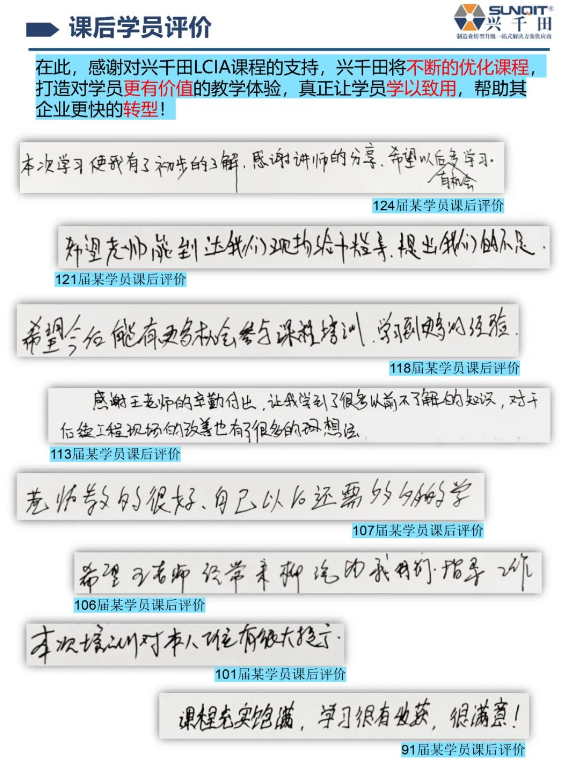 课后学员评价
SUNQIT®
兴千田
制造业转型升级一站式解决方案供应商
在此，感谢对兴千田LCIA课程的支持，兴千田将不断的优化课程，
打造对学员更有价值的教学体验，真正让学员学以致用，帮助其
企业更快的转型！
本次学习使我有了初步的了解，感谢讲师的分享，希望以后多学习。
有机会
124届某学员课后评价
希望老师能到达我们现场给予指导，提出我们的不足．
121届某学员课后评价
希望今后能有更多机会参与课程培训，学习到更多的经验．
118届某学员课后评价
感谢王老师的辛勤付出，让我学到了很多以前不了解的知识，对于
后续工程现场的改善也有了很多的想法．
113届某学员课后评价
老师教的很好、自己以后还需多多的学
107届某学员课后评价
希望王老师经常来柳汽为我们指导工作
106届某学员课后评价
本次培训对本人有很大提示．
101届某学员课后评价
课程充实饱满，学习很有收获，很满意！
91届某学员课后评价